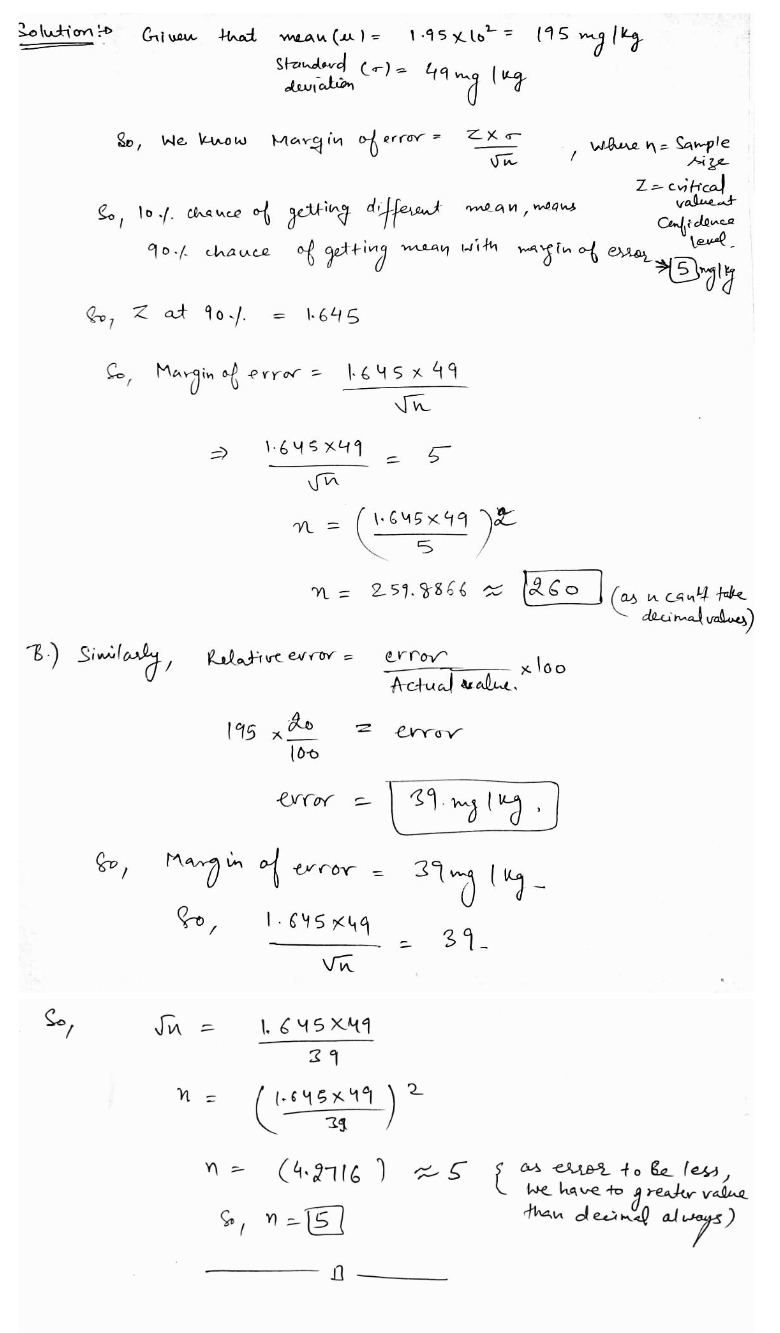 Solution:→ Given that mean (μ) = 1.95 × 10² = 195 mg/kg
Standard deviation (σ) = 49 mg/kg
So, We know Margin of error = Z×σ / √n , where n = Sample size
Z = critical value at Confidence level.
So, 10 % chance of getting different mean, means
90 % chance of getting mean with margin of error → 5 mg/kg
So, Z at 90 % = 1.645
So, Margin of error = 1.645 × 49 / √n
⇒ 1.645 ×49 / √n = 5
n = (1.645×49 / 5)2
n = 259.8866 ≈ 260 (as n can't take decimal values)
B.) Similarly, Relative error = error / Actual value. × 100
195 × 20 / 100 = error
error = 39. mg/kg.
So, Margin of error = 39 mg/kg -
So, 1.645 ×49 / √n = 39 -
So, √n = 1.645 ×49 / 39
n = (1.645 ×49 / 39)2
n = (4.2716) ≈ 5 { as error to be less, we have to greater value than decimal always)
So, n = 5